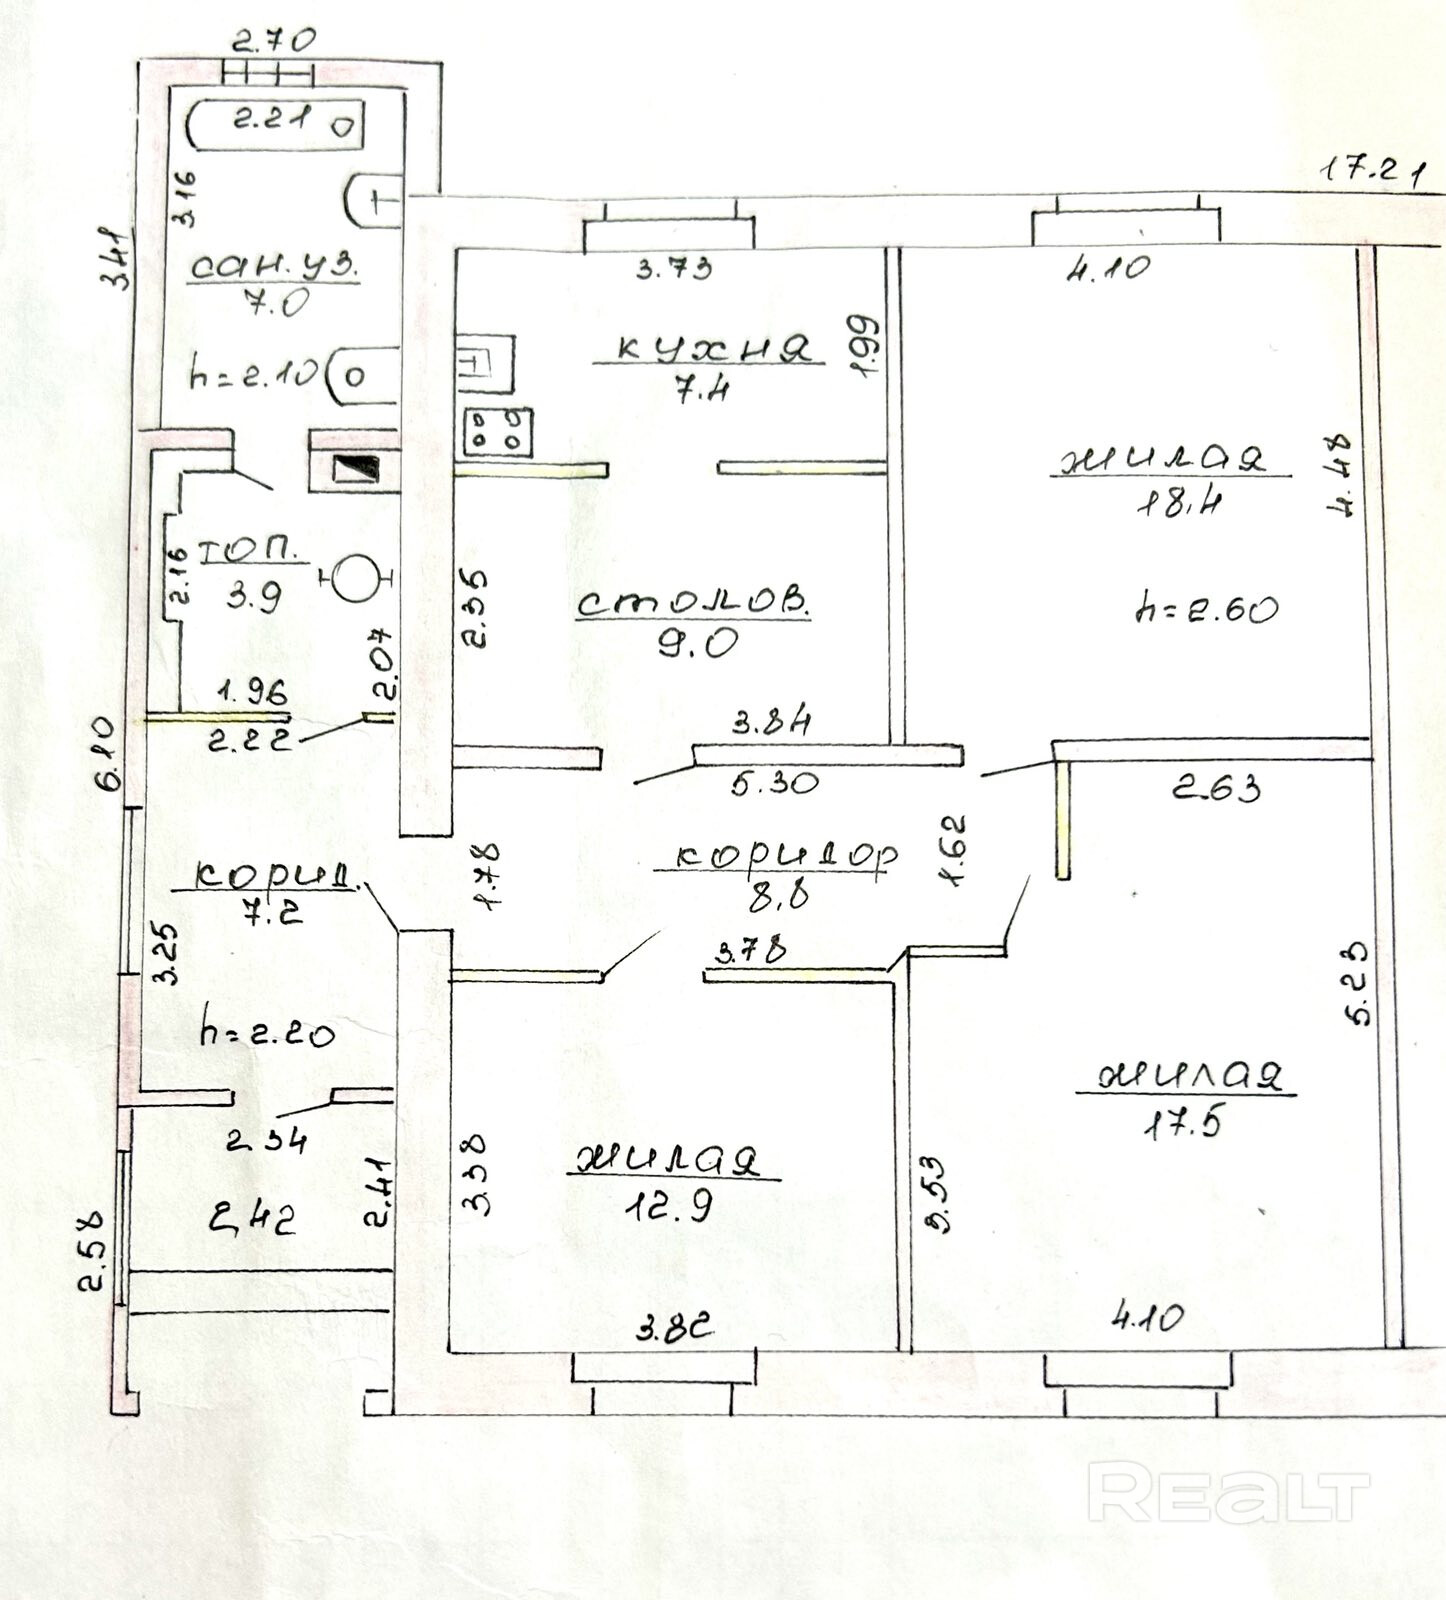 2.70
2.21
17.21
3.16
341
сан.уз.
7.0
h=2.10
3.73
4.10
кухня
7.4
1.99
жилая
18.4
4.48
h=2.60
топ.
3.9
2.16
2.07
1.96
2.22
2.35
столов.
9.0
3.84
5.30
2.63
6.10
корид.
7.2
3.25
h=2.20
1.78
коридор
8.8
1.62
3.78
5.23
жилая
17.5
жилая
12.9
3.38
2.34
2,42
2.41
2.58
3.82
4.10
REALT